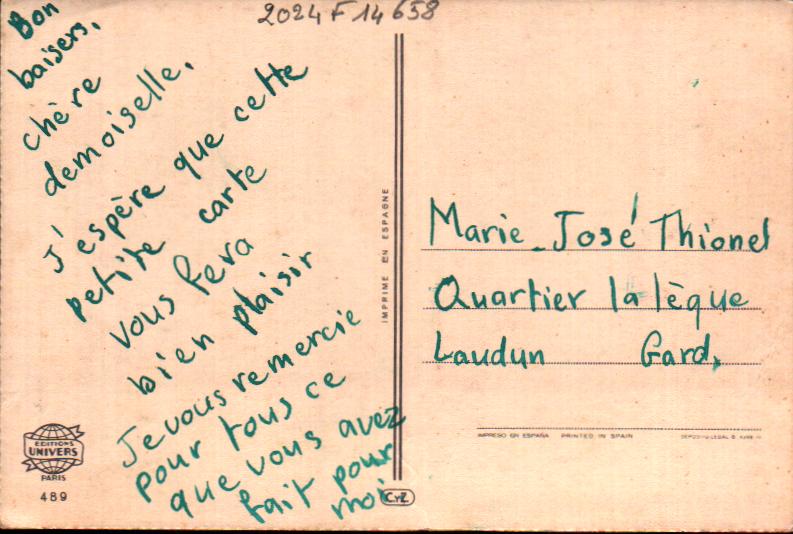 2024 F 14 658
Bon
baisers,
chère
demoiselle.
J'espère que cette
petite carte
vous fera
bien plaisir
Je vous remercie
pour tous ce
que vous avez
fait pour
moi
EDITIONS
UNIVERS
PARIS
489
IMPRIME EN ESPAGNE
CYZ
Marie-José Thionel
Quartier la lèque
Laudun Gard,
IMPRESO EN ESPAÑA PRINTED IN SPAIN DEPOSITO LEGAL B.